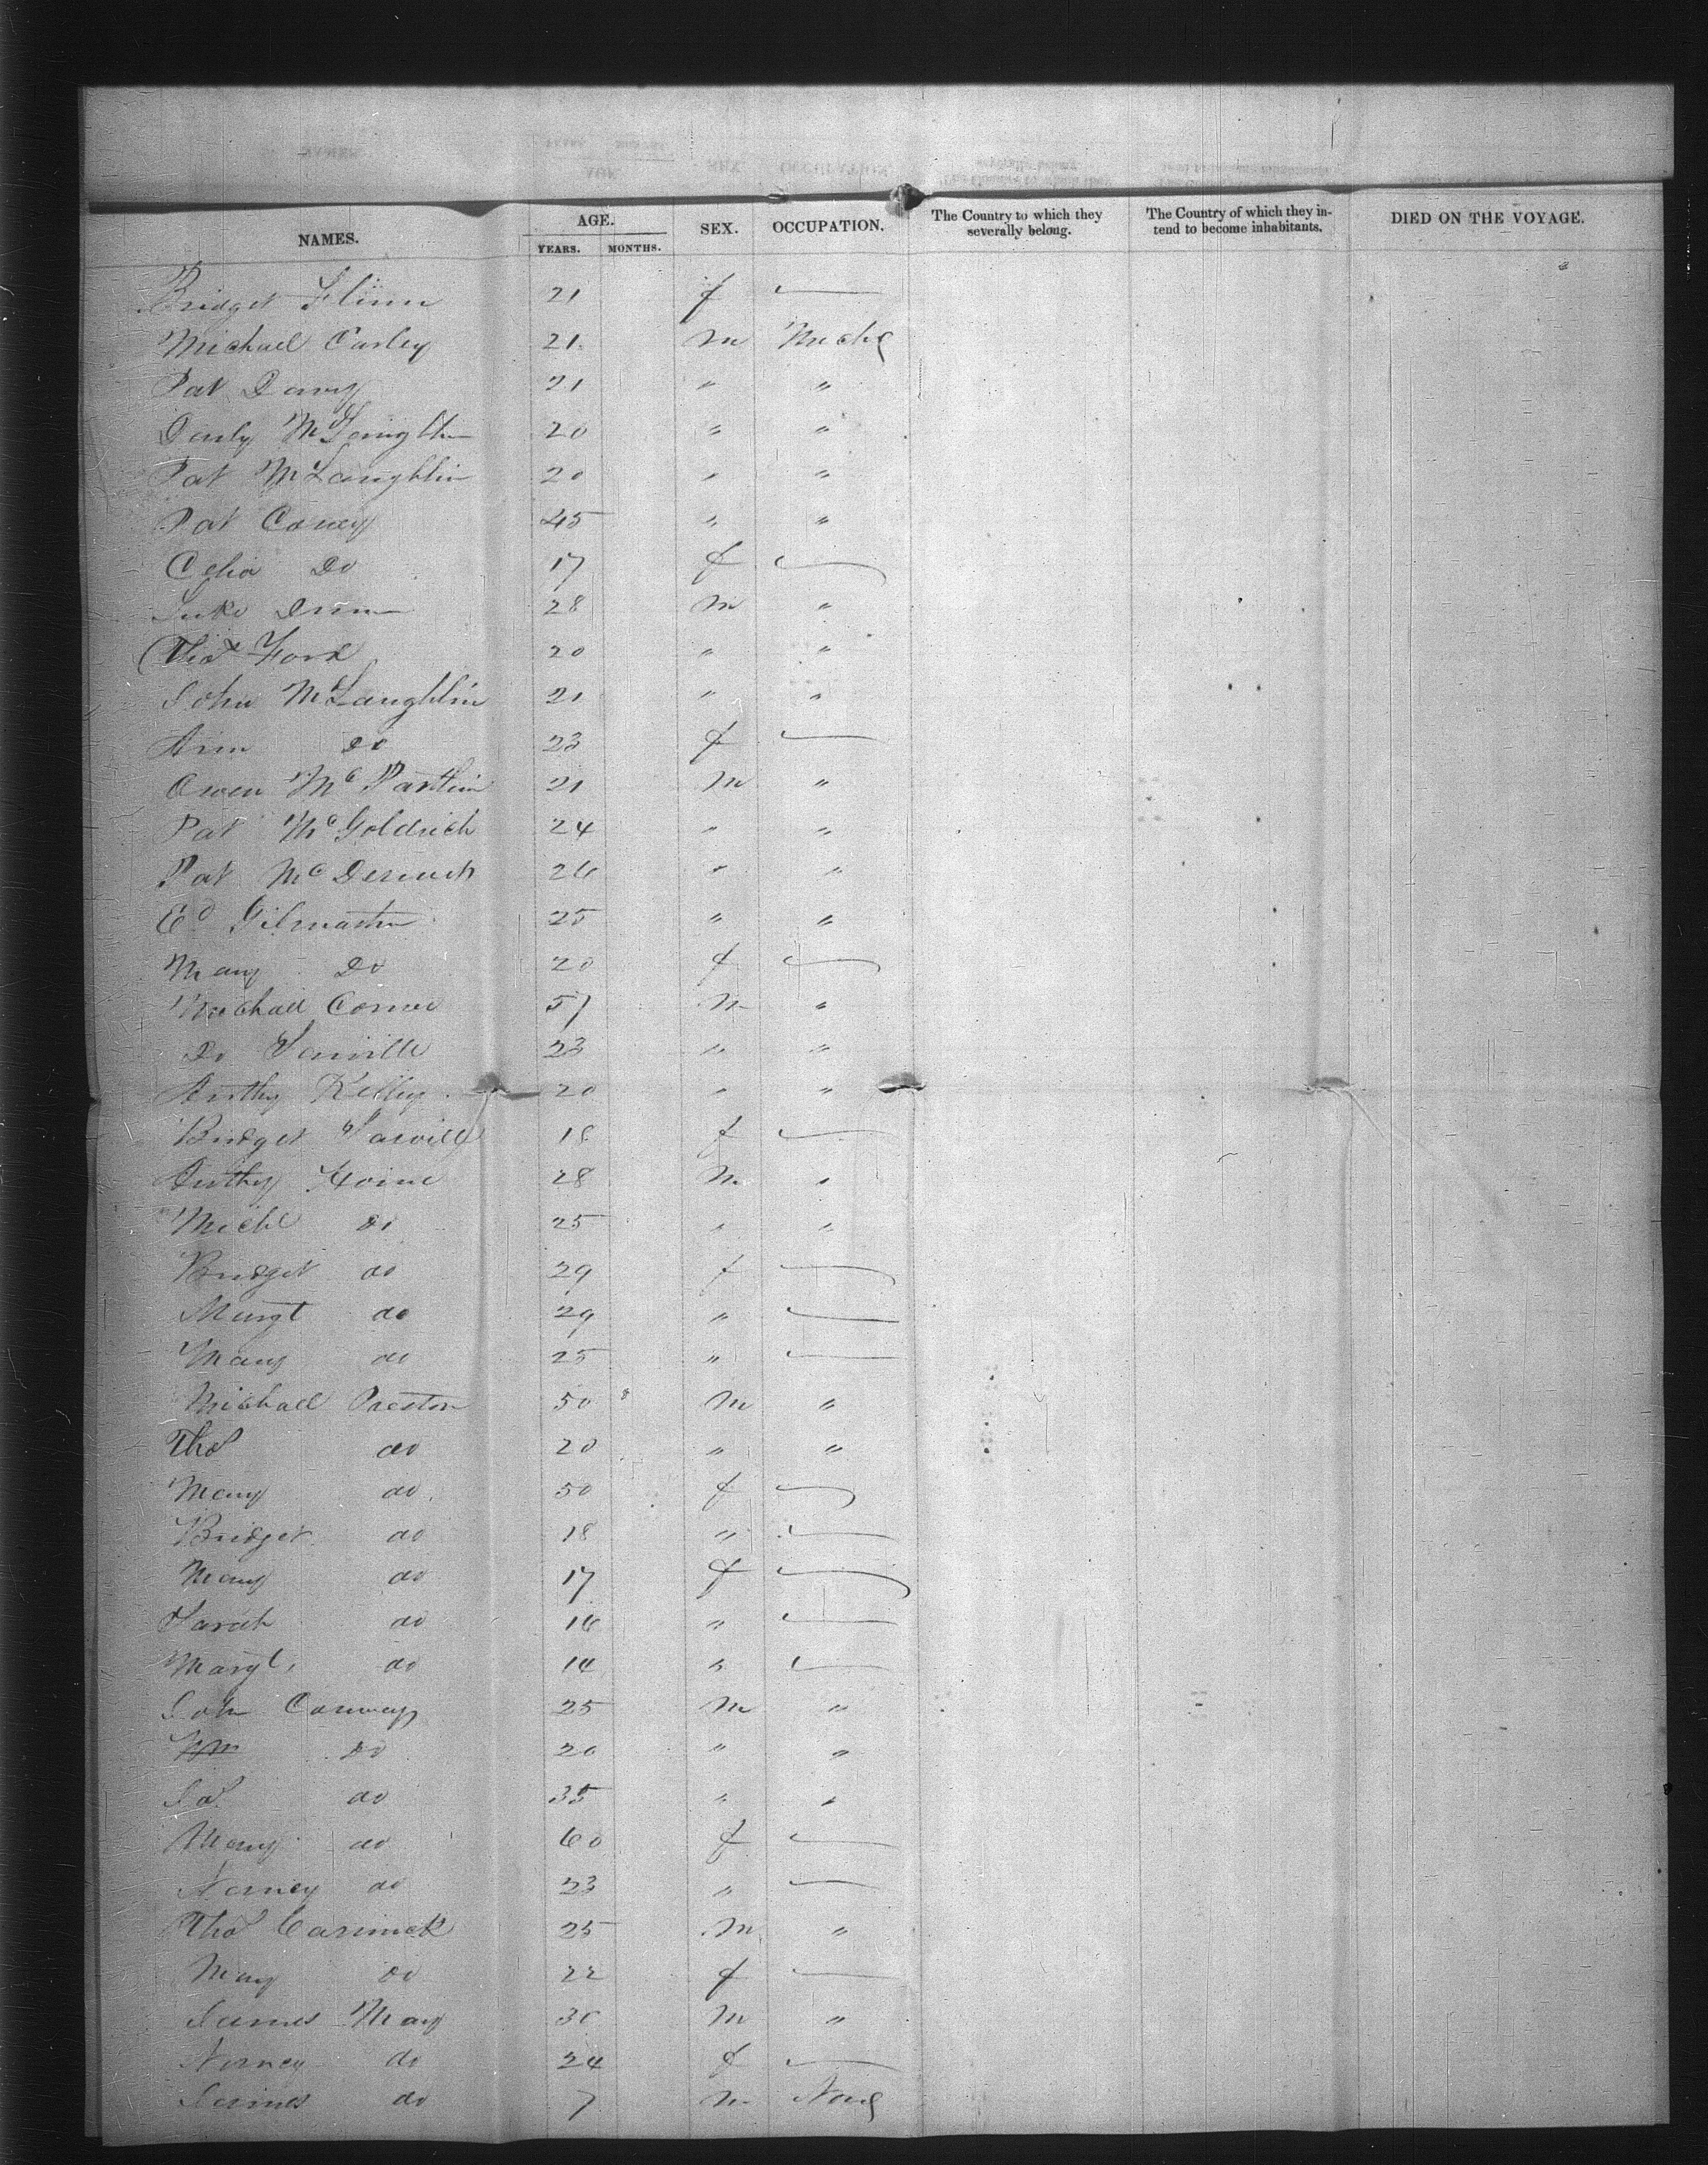 NAMES. AGE. YEARS. MONTHS. SEX. OCCUPATION. The Country to which they severally belong. The Country of which they intend to become inhabitants. DIED ON THE VOYAGE.
Bridget Flinn 21 f
Michael Carley 21 m
Pat 21 " "
20 " "
Pat McLaughlin 20 " "
Pat 45 " "
Celia Do 17 f
Luke 28 m "
Thos Ford 20 " "
John McLaughlin 21 " "
Ann Do 23 f
Owen Mc Partlin 21 m "
Pat Mc Goldrick 24 " "
Pat Mc 26 " "
Ed 25 " "
Mary Do 20 f
Michael 57 m "
Do 23 " "
Anthy Kelley 20 " "
Bridget 18 f
Anthy 28 m "
Michl Do 25 " "
Bridget do 29 f
Margt do 29 "
Mary do 25 "
Michael Preston 50 m "
Thos do 20 " "
Mary do 50 f
Bridget do 18 "
Mary do 17 f
Sarah do 16 "
Margt do 14 "
John Conway 25 m "
Wm Do 20 " "
do 35 " "
Mary do 60 f
do 23 "
Thos 25 m "
Mary Do 22 f
James May 30 m "
do 24 f
James do 7 m None